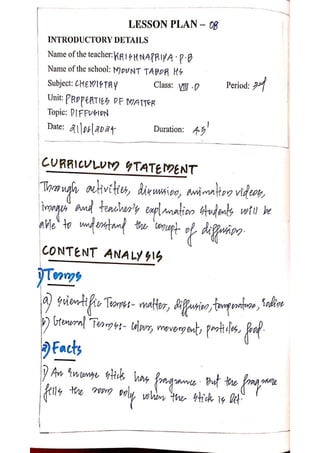 LESSON PLAN – 08
INTRODUCTORY DETAILS
Name of the teacher: KRISHNAPRIYA . P . B
Name of the school: MOUNT TABOR HS
Subject: CHEMISTRY Class: VIII . D Period: 3rd
Unit: PROPERTIES OF MATTER
Topic: DIFFUSION
Date: 21/06/2024 Duration: 45'
CURRICULUM STATEMENT
Through activities, discussion, animation videos,
images and teacher's explanation students will be
able to understand the concept of diffusion.
CONTENT ANALYSIS
1) Terms
a) Scientific Terms:- matter, diffusion, temperature, Iodine
b) General Terms:- colour, movement, particles, food.
2) Facts
1) An incense stick has fragrance. But the fragrance
fills the room only when the stick is lit.